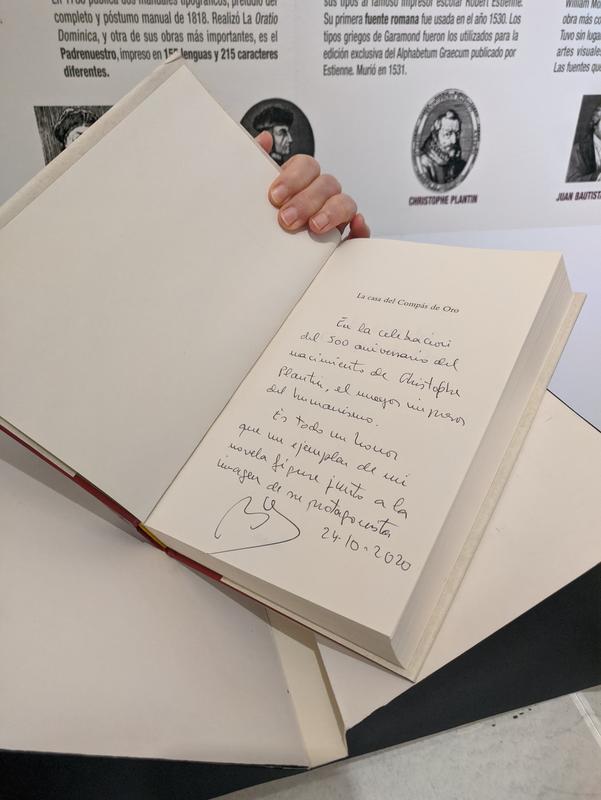 En 1788 publicó dos manuales tipográficos, preludio del
completo y póstumo manual de 1818. Realizó La Oratio
Dominica, y otra de sus obras más importantes, es el
Padrenuestro, impreso en 155 lenguas y 215 caracteres
diferentes.
sus tipos al famoso impresor escolar Robert Estienne.
Su primera fuente romana fue usada en el año 1530. Los
tipos griegos de Garamond fueron los utilizados para la
edición exclusiva del Alphabetum Graecum publicado por
Estienne. Murió en 1531.
William Mo
obra más co
Tuvo sin lugar
artes visuales
Las fuentes que
CHRISTOPHE PLANTIN
JUAN BAUTIST
La casa del Compás de Oro
En la celebración
del 500 aniversario del
nacimiento de Christophe
Plantin, el mayor impresor
del humanismo.
Es todo un honor
que un ejemplar de mi
novela figure junto a la
imagen de su protagonista
24-10-2020